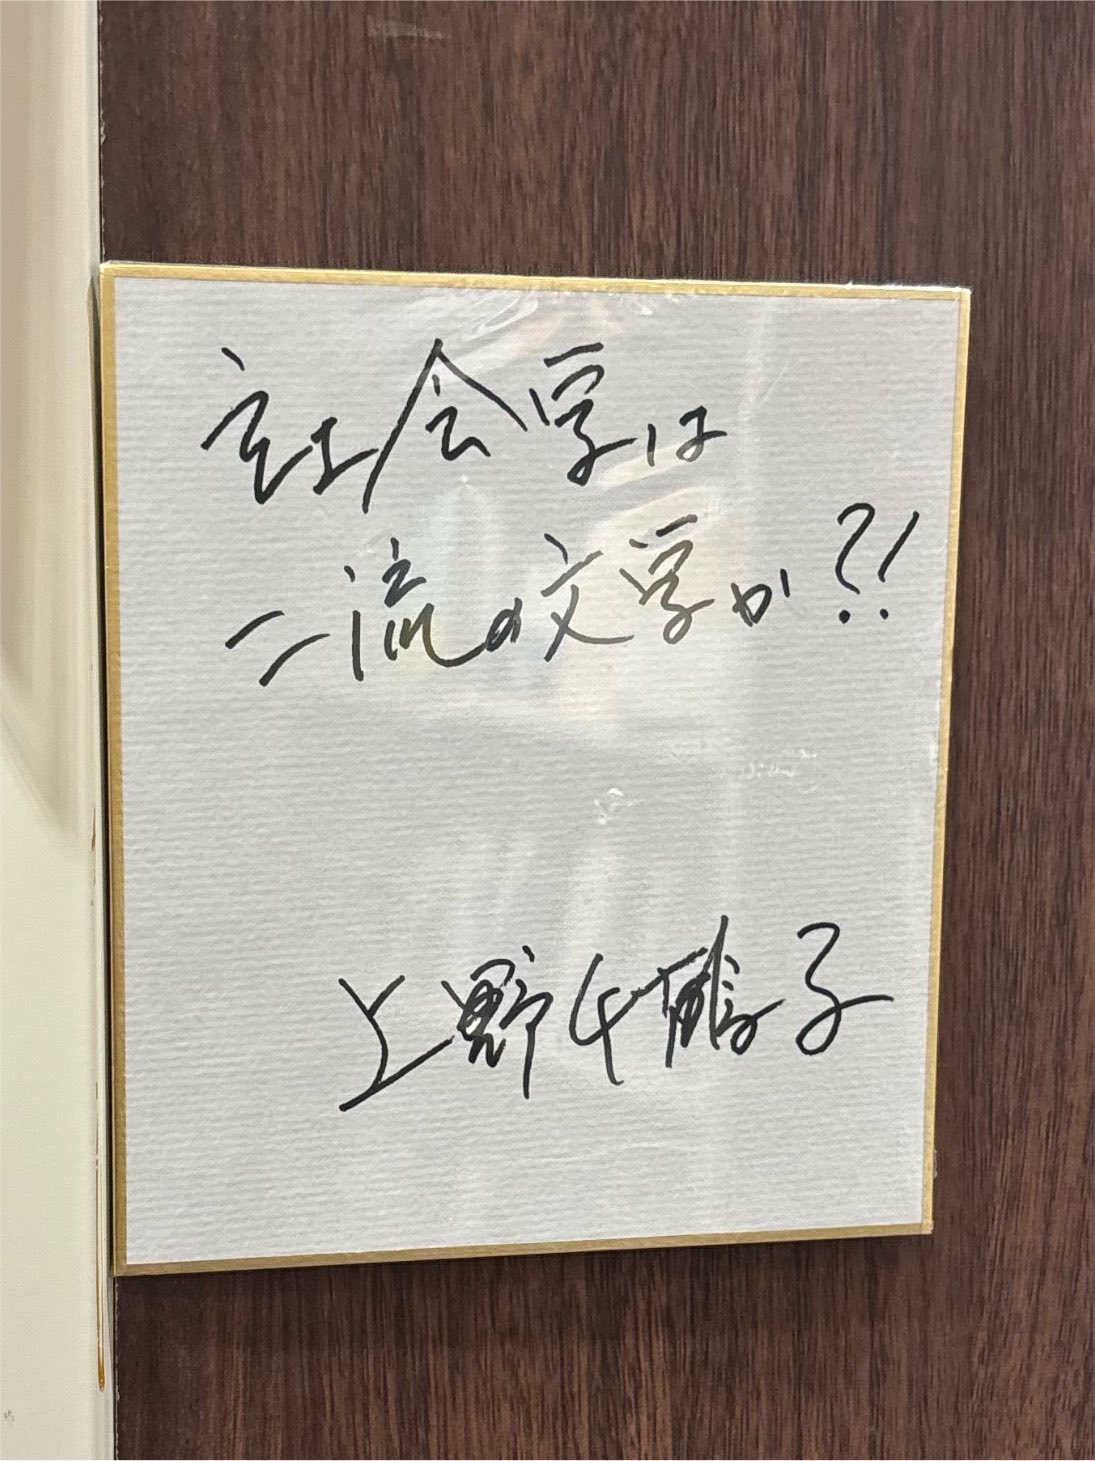 社会学は
二流の文学か?!
上野千鶴子